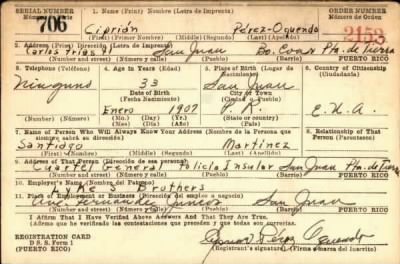 SERIAL NUMBER 1. Name (Print) (Nombre) (Letra de Imprenta) ORDER NUMBER
Número de Serie Número de Orden
706 Ciprián Pérez-Oquendo 2153
(First) (Primer Nombre) (Middle) (Segundo Nombre) (Last) (Apellido)
2. Address (Print) (Dirección) (Letra de Imprenta)
Carlos San Juan Bo. Pta. de Tierra
(Pueblo) (Barrio) PUERTO RICO
3. Telephone (Teléfono) 4. Age in Years (Edad) 5. Place of Birth (Lugar de Nacimiento) 6. Country of Citizenship (Ciudadanía)
Ninguno 33 San Juan
Date of Birth (Fecha Nacimiento) City or Town (Ciudad o Pueblo)
Enero 1907 P. R. E. U. A.
(Mo.) (Mes) (Day) (Día) (Yr.) (Año) (State or country) (Estado o país)
7. Name of Person Who Will Always Know Your Address (Nombre de la Persona que siempre sabrá su dirección) 8. Relationship of That Person (Parentesco)
Santiago Martinez
(First) (Primer Nombre) (Middle) (Segundo Nombre) (Last) (Apellido)
9. Address of That Person (Dirección de esa persona)
Cuartel General Policía Insular San Juan Pta. de Tierra
(Pueblo) (Barrio) PUERTO RICO
10. Employer's Name (Nombre del Patrono)
Brothers
11. Place of Employment or Business (Dirección del empleo o negocio)
Fernández Juncos San Juan
(Pueblo) (Barrio) PUERTO RICO
I Affirm That I Have Verified Above Answers And That They Are True.
(Afirmo que he verificado las contestaciones que preceden y que todas son correctas).
REGISTRATION CARD
D. S. S. Form 1
(PUERTO RICO)
Ciprian Perez Oquendo
Registrant's signature (Firma del Inscrito)